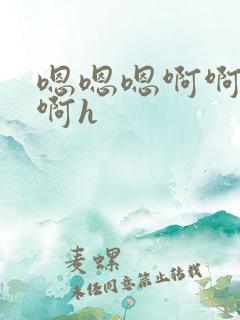 嗯嗯嗯啊啊
啊h
麦螺
未经同意禁止转载